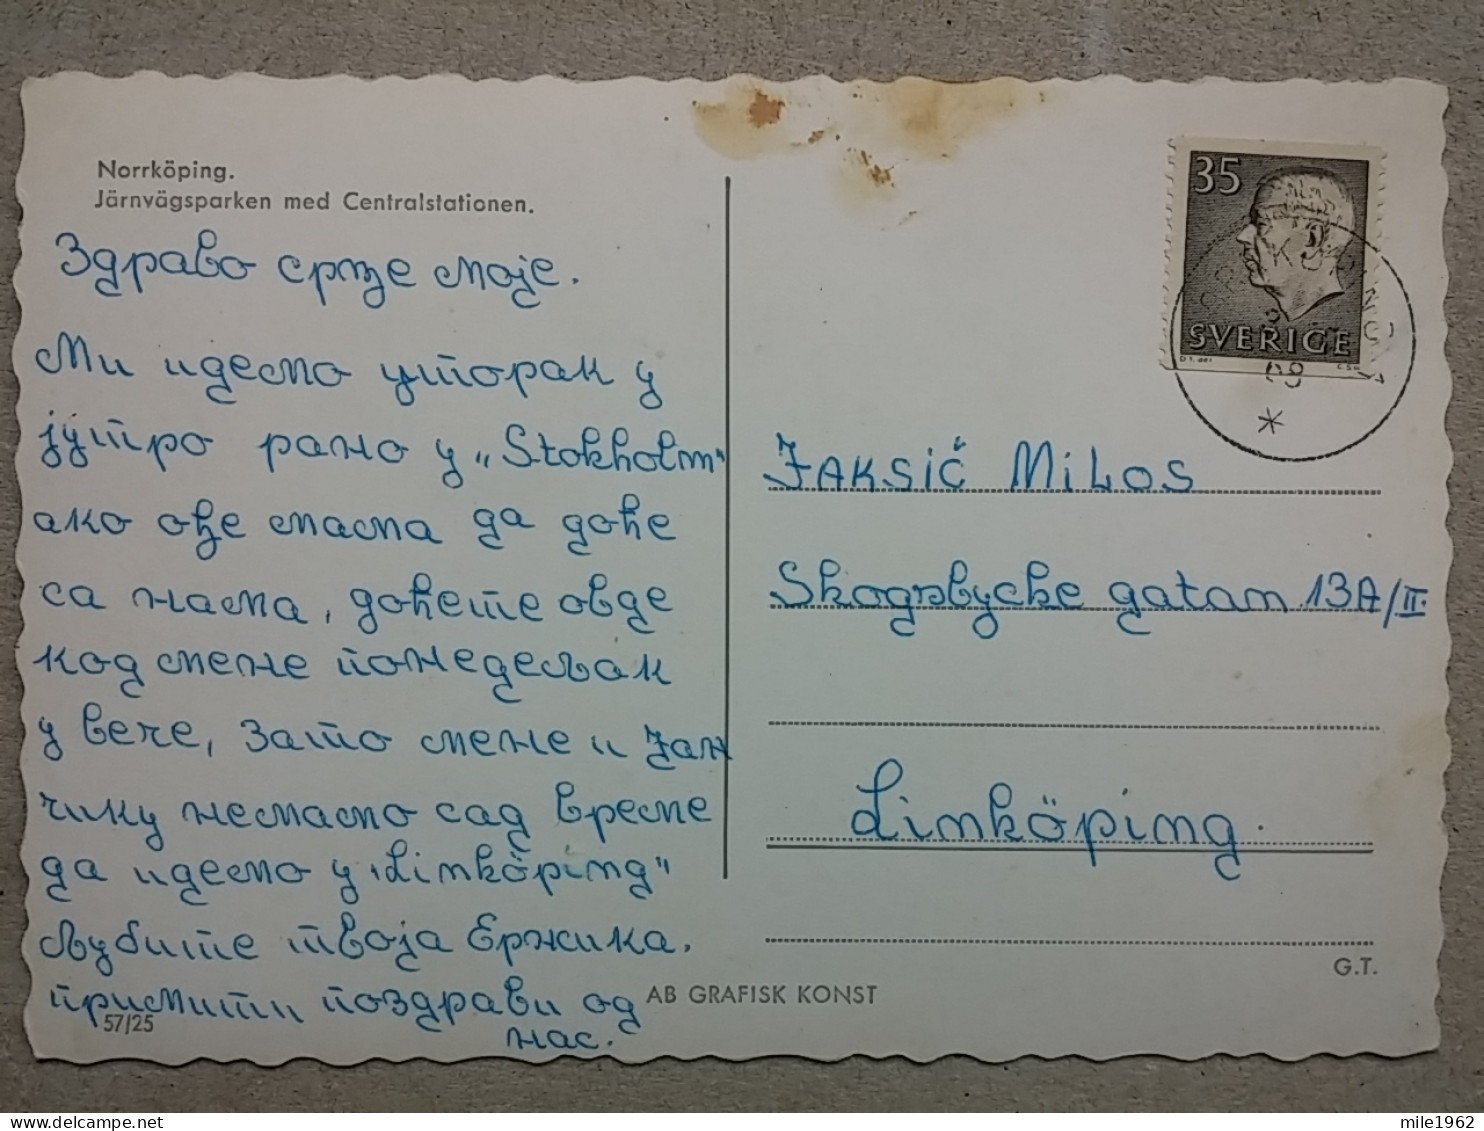 Norrköping.
Järnvägsparken med Centralstationen.
Здраво срце моје.
Ми идемо уторак у
јутро рано у „Stokholm"
ако оће мама да дође
са нама, дођете овде
код мене понедељак
у вече, зато мене и Јан
чику немамо сад време
да идемо у „Linköping"
Љубите твоја Ержика.
примити поздрави од
нас.
57/25
AB GRAFISK KONST
35
SVERIGE
JAKSIĆ MiLOS
Skogsbycke gatan 13A/II.
Linköping.
G.T.
mile1962